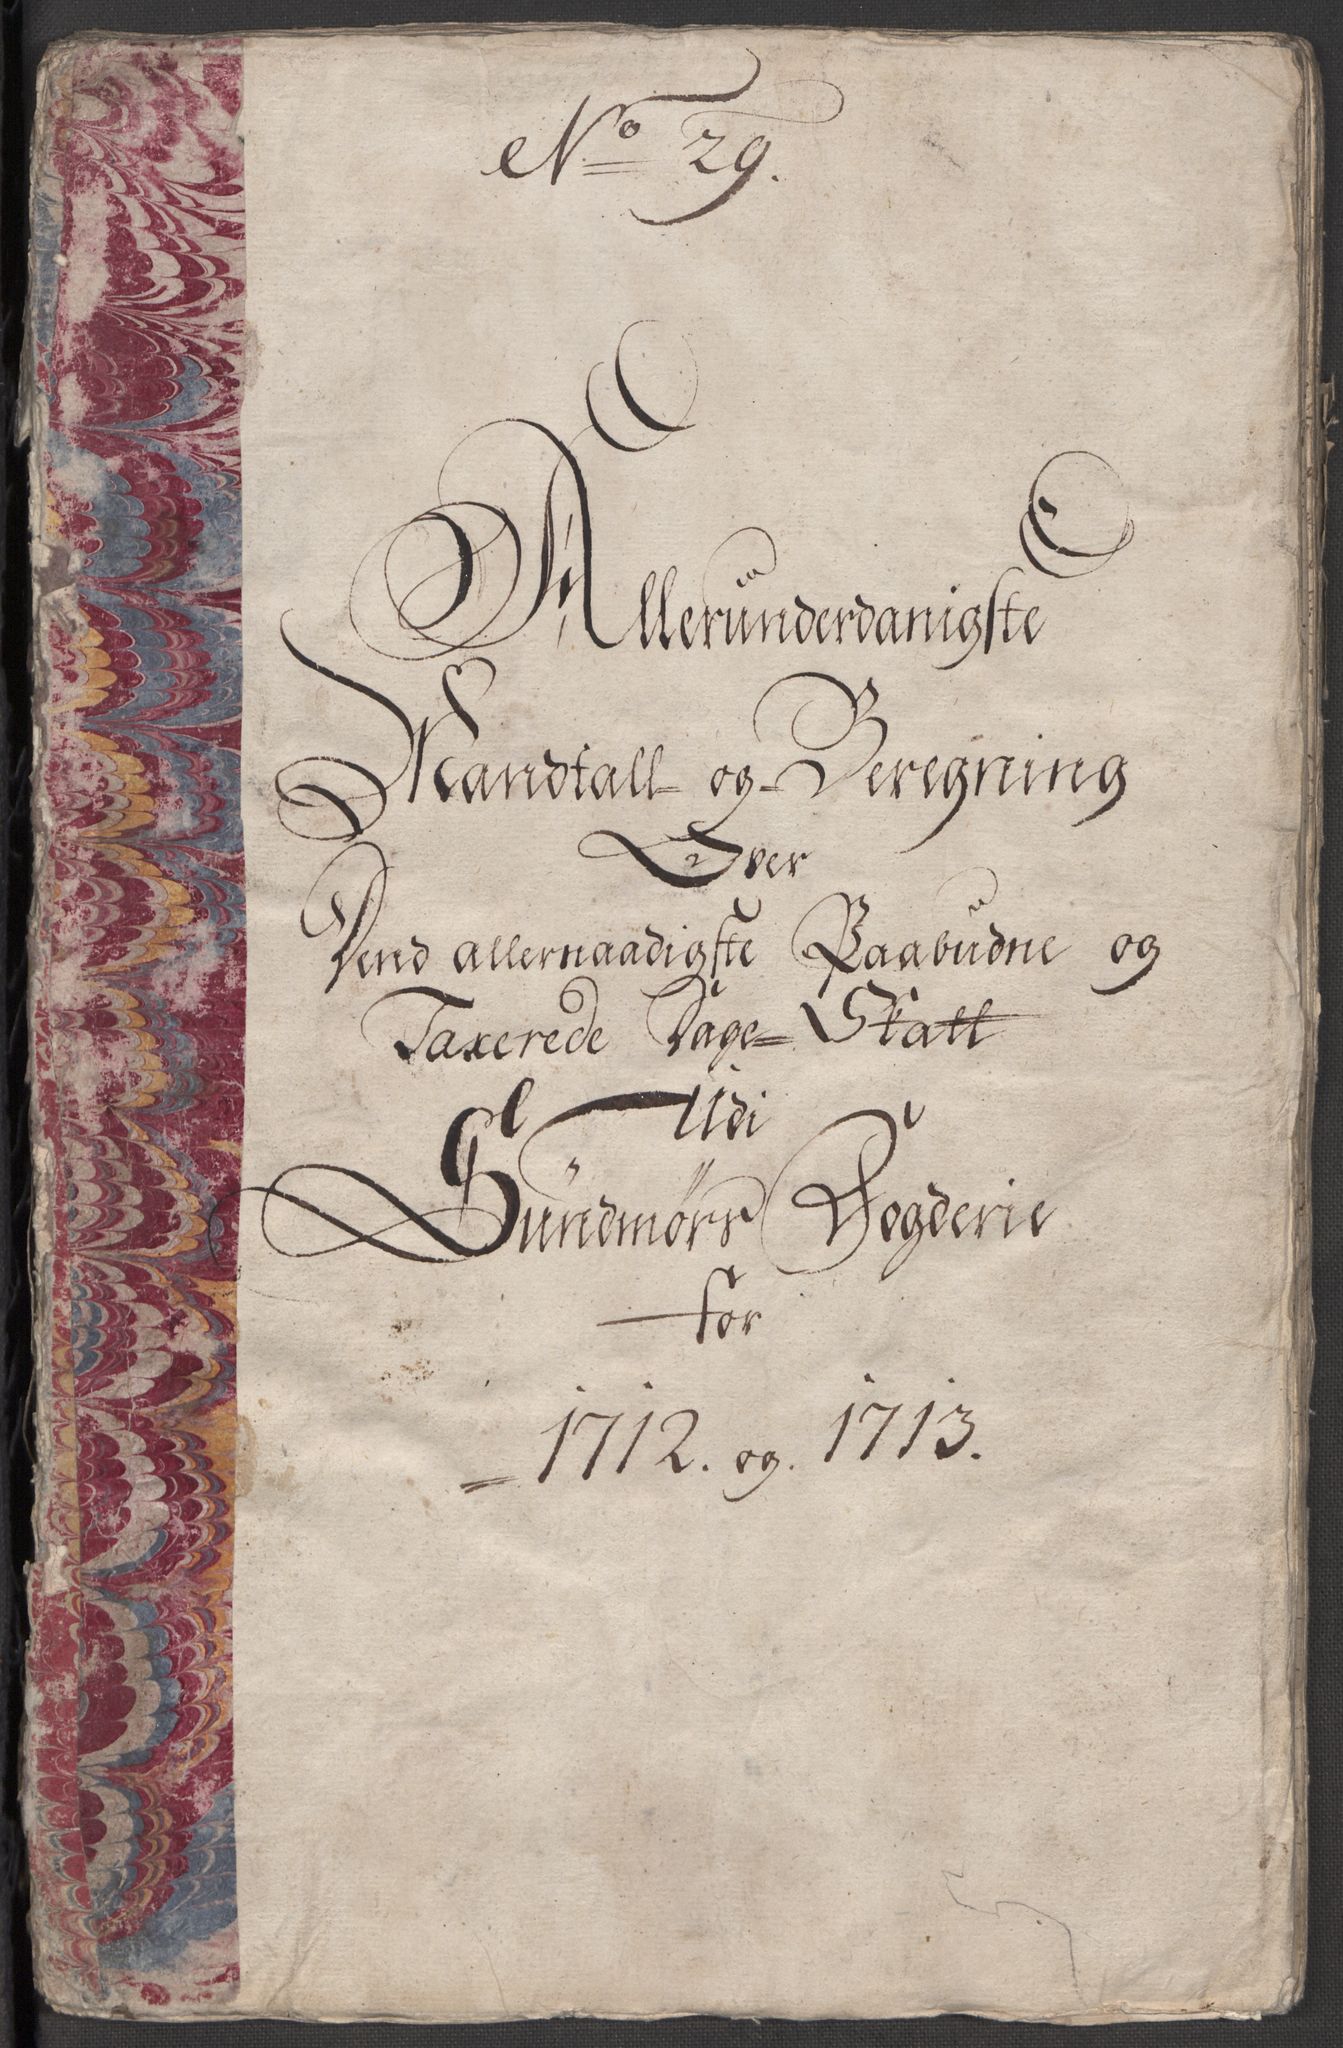 No 29.
Allerunderdanigste
Mandtall og Beregning
Over
Dend allernaadigste Paabudne og
Taxerede Dage= Skatt
Udi
Sundmørs Fogderie
for
= 1712. og. 1713.